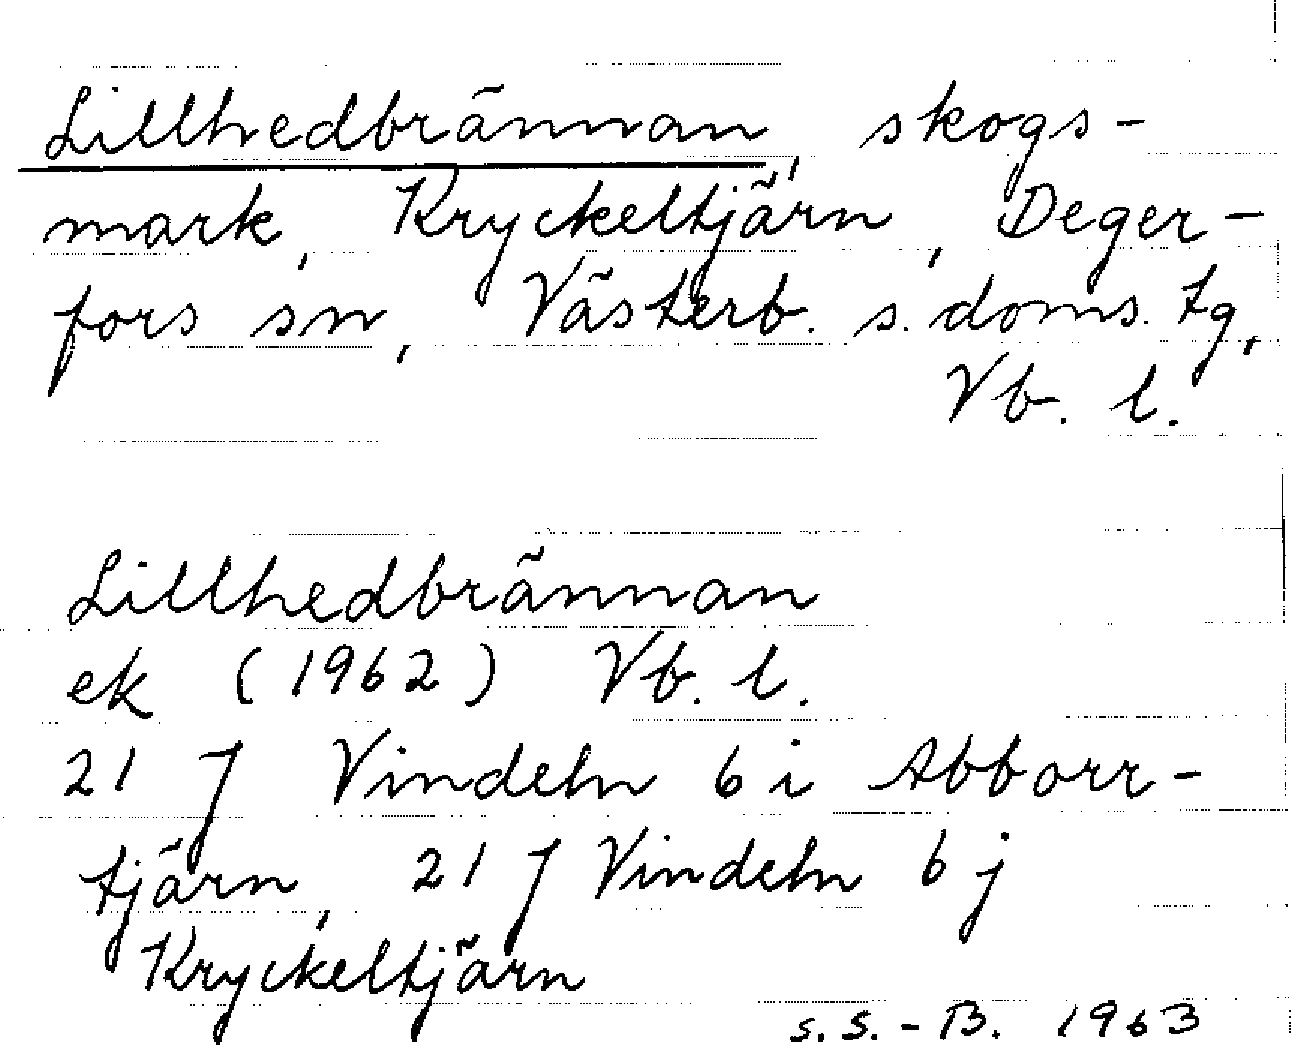 Lillhedbrännan, skogs-
mark, Kryckeltjärn, Deger-
fors sn, Västerb. s. doms. tg,
Vb. l.
Lillhedbrännan
ek (1962) Vb. l.
21 J Vindeln 6 i Abborr-
tjärn, 21 J Vindeln 6 j
Kryckeltjärn
S. S.-B. 1963